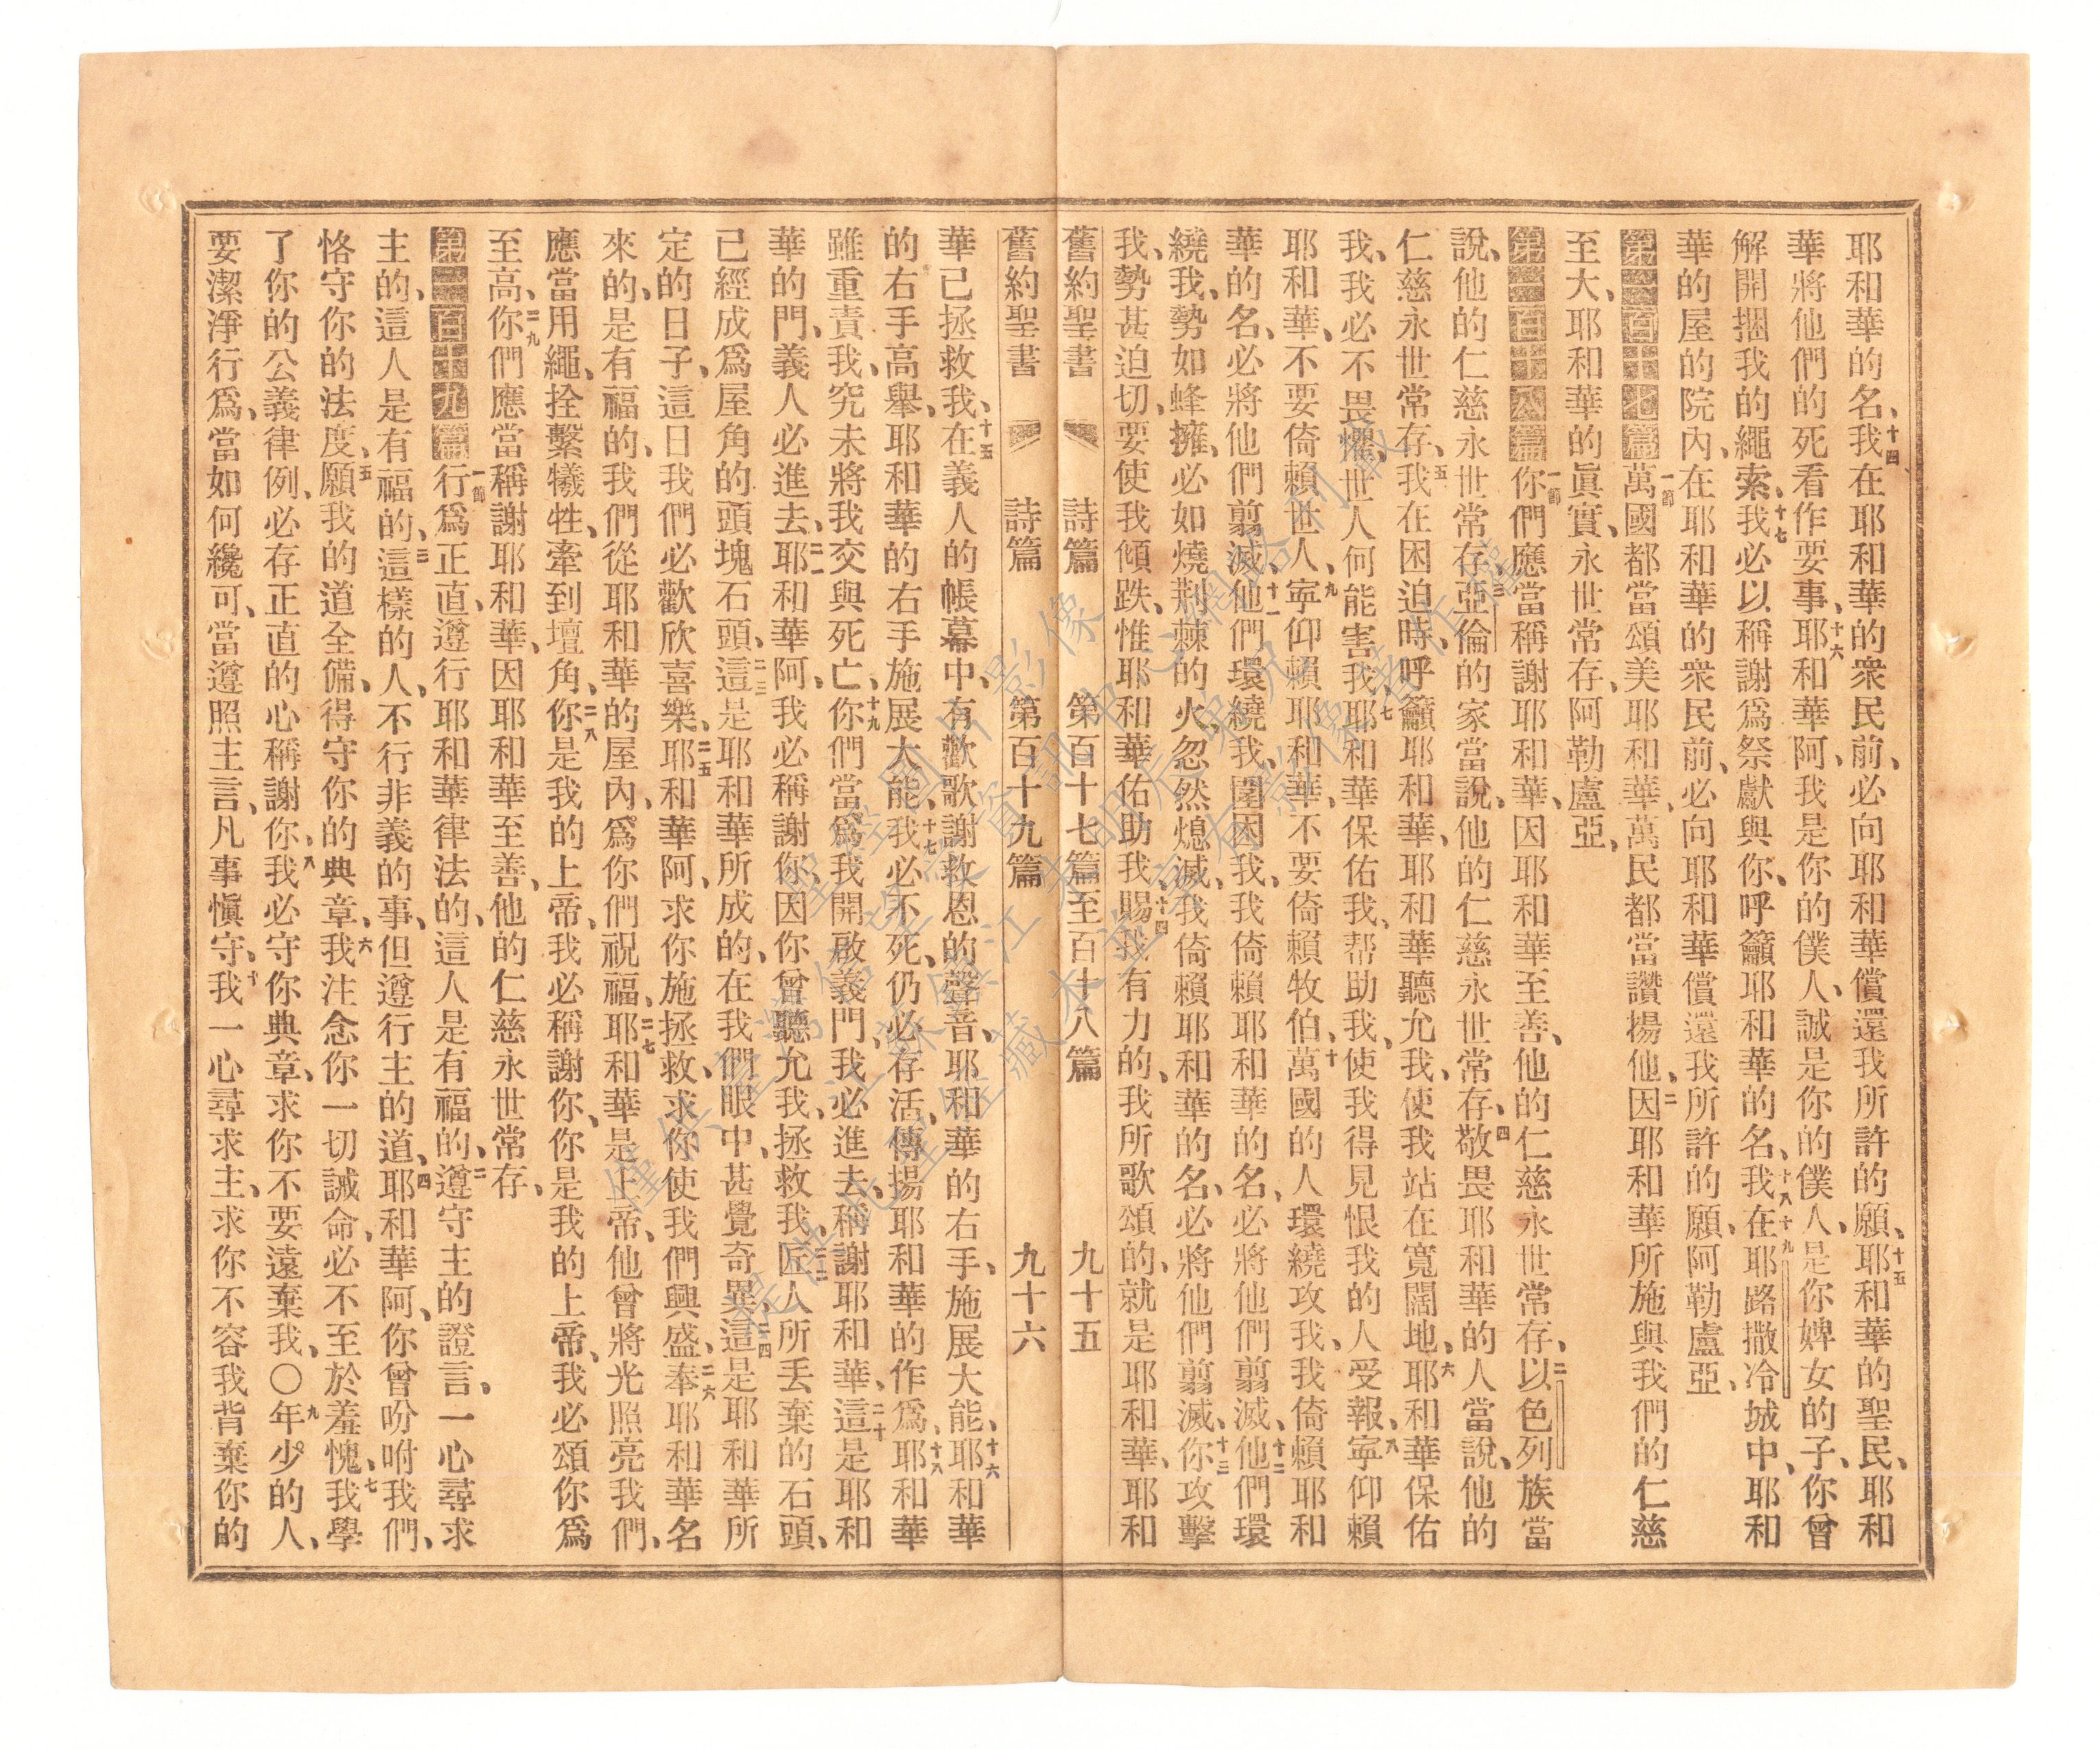 耶和華的名、十四我在耶和華的衆民前、必向耶和華償還我所許的願、十五耶和華的聖民、耶和
華將他們的死看作要事、十六耶和華阿、我是你的僕人、誠是你的僕人、是你婢女的子、你曾
解開捆我的繩索、十七我必以稱謝爲祭獻與你、呼籲耶和華的名、十八十九我在耶路撒冷城中、耶和
華的屋的院內、在耶和華的衆民前、必向耶和華償還我所許的願、阿勒盧亞、
第一百十七篇一節萬國都當頌美耶和華、萬民都當讚揚他、二因耶和華所施與我們的仁慈
至大、耶和華的眞實、永世常存、阿勒盧亞、
第一百十八篇一節你們應當稱謝耶和華、因耶和華至善、他的仁慈永世常存、二以色列族當
說、他的仁慈永世常存、三亞倫的家當說、他的仁慈永世常存、四敬畏耶和華的人當說、他的
仁慈永世常存、五我在困迫時、呼籲耶和華、耶和華聽允我、使我站在寬闊地、六耶和華保佑
我、我必不畏懼、世人何能害我、七耶和華保佑我、帮助我、使我得見恨我的人受報、八寧仰賴
耶和華、不要倚賴世人、九寧仰賴耶和華、不要倚賴牧伯、十萬國的人環繞攻我、我倚賴耶和
華的名、必將他們翦滅、十一他們環繞我、圍困我、我倚賴耶和華的名、必將他們翦滅、十二他們環
繞我、勢如蜂擁、必如燒荆棘的火、忽然熄滅、我倚賴耶和華的名、必將他們翦滅、十三你攻擊
我、勢甚迫切、要使我傾跌、惟耶和華佑助我、十四賜我有力的、我所歌頌的、就是耶和華、耶和
舊約聖書 詩篇 第百十七篇至百十八篇 九十五
舊約聖書 詩篇 第百十九篇 九十六
華已拯救我、十五在義人的帳幕中、有歡歌謝救恩的聲音、耶和華的右手、施展大能、十六耶和華
的右手高舉、耶和華的右手施展大能、十七我必不死、仍必存活、傳揚耶和華的作爲、十八耶和華
雖重責我、究未將我交與死亡、十九你們當爲我開啟義門、我必進去、稱謝耶和華、二十這是耶和
華的門、義人必進去、二一耶和華阿、我必稱謝你、因你曾聽允我、拯救我、二二匠人所丢棄的石頭、
已經成爲屋角的頭塊石頭、二三這是耶和華所成的、在我們眼中、甚覺奇異、二四這是耶和華所
定的日子、這日我們必歡欣喜樂、二五耶和華阿、求你施拯救、求你使我們興盛、二六奉耶和華名
來的、是有福的、我們從耶和華的屋內、爲你們祝福、二七耶和華是上帝、他曾將光照亮我們、
應當用繩、拴繫犧牲、牽到壇角、二八你是我的上帝、我必稱謝你、你是我的上帝、我必頌你爲
至高、二九你們應當稱謝耶和華、因耶和華至善、他的仁慈永世常存、
第一百十九篇一節行爲正直、遵行耶和華律法的、這人是有福的、二遵守主的證言、一心尋求
主的、這人是有福的、三這樣的人、不行非義的事、但遵行主的道、四耶和華阿、你曾吩咐我們、
恪守你的法度、五願我的道全備、得守你的典章、六我注念你一切誡命、必不至於羞愧、七我學
了你的公義律例、必存正直的心稱謝你、八我必守你典章、求你不要遠棄我、○九年少的人、
要潔淨行爲、當如何纔可、當遵照主言、凡事愼守、十我一心尋求主、求你不容我背棄你的